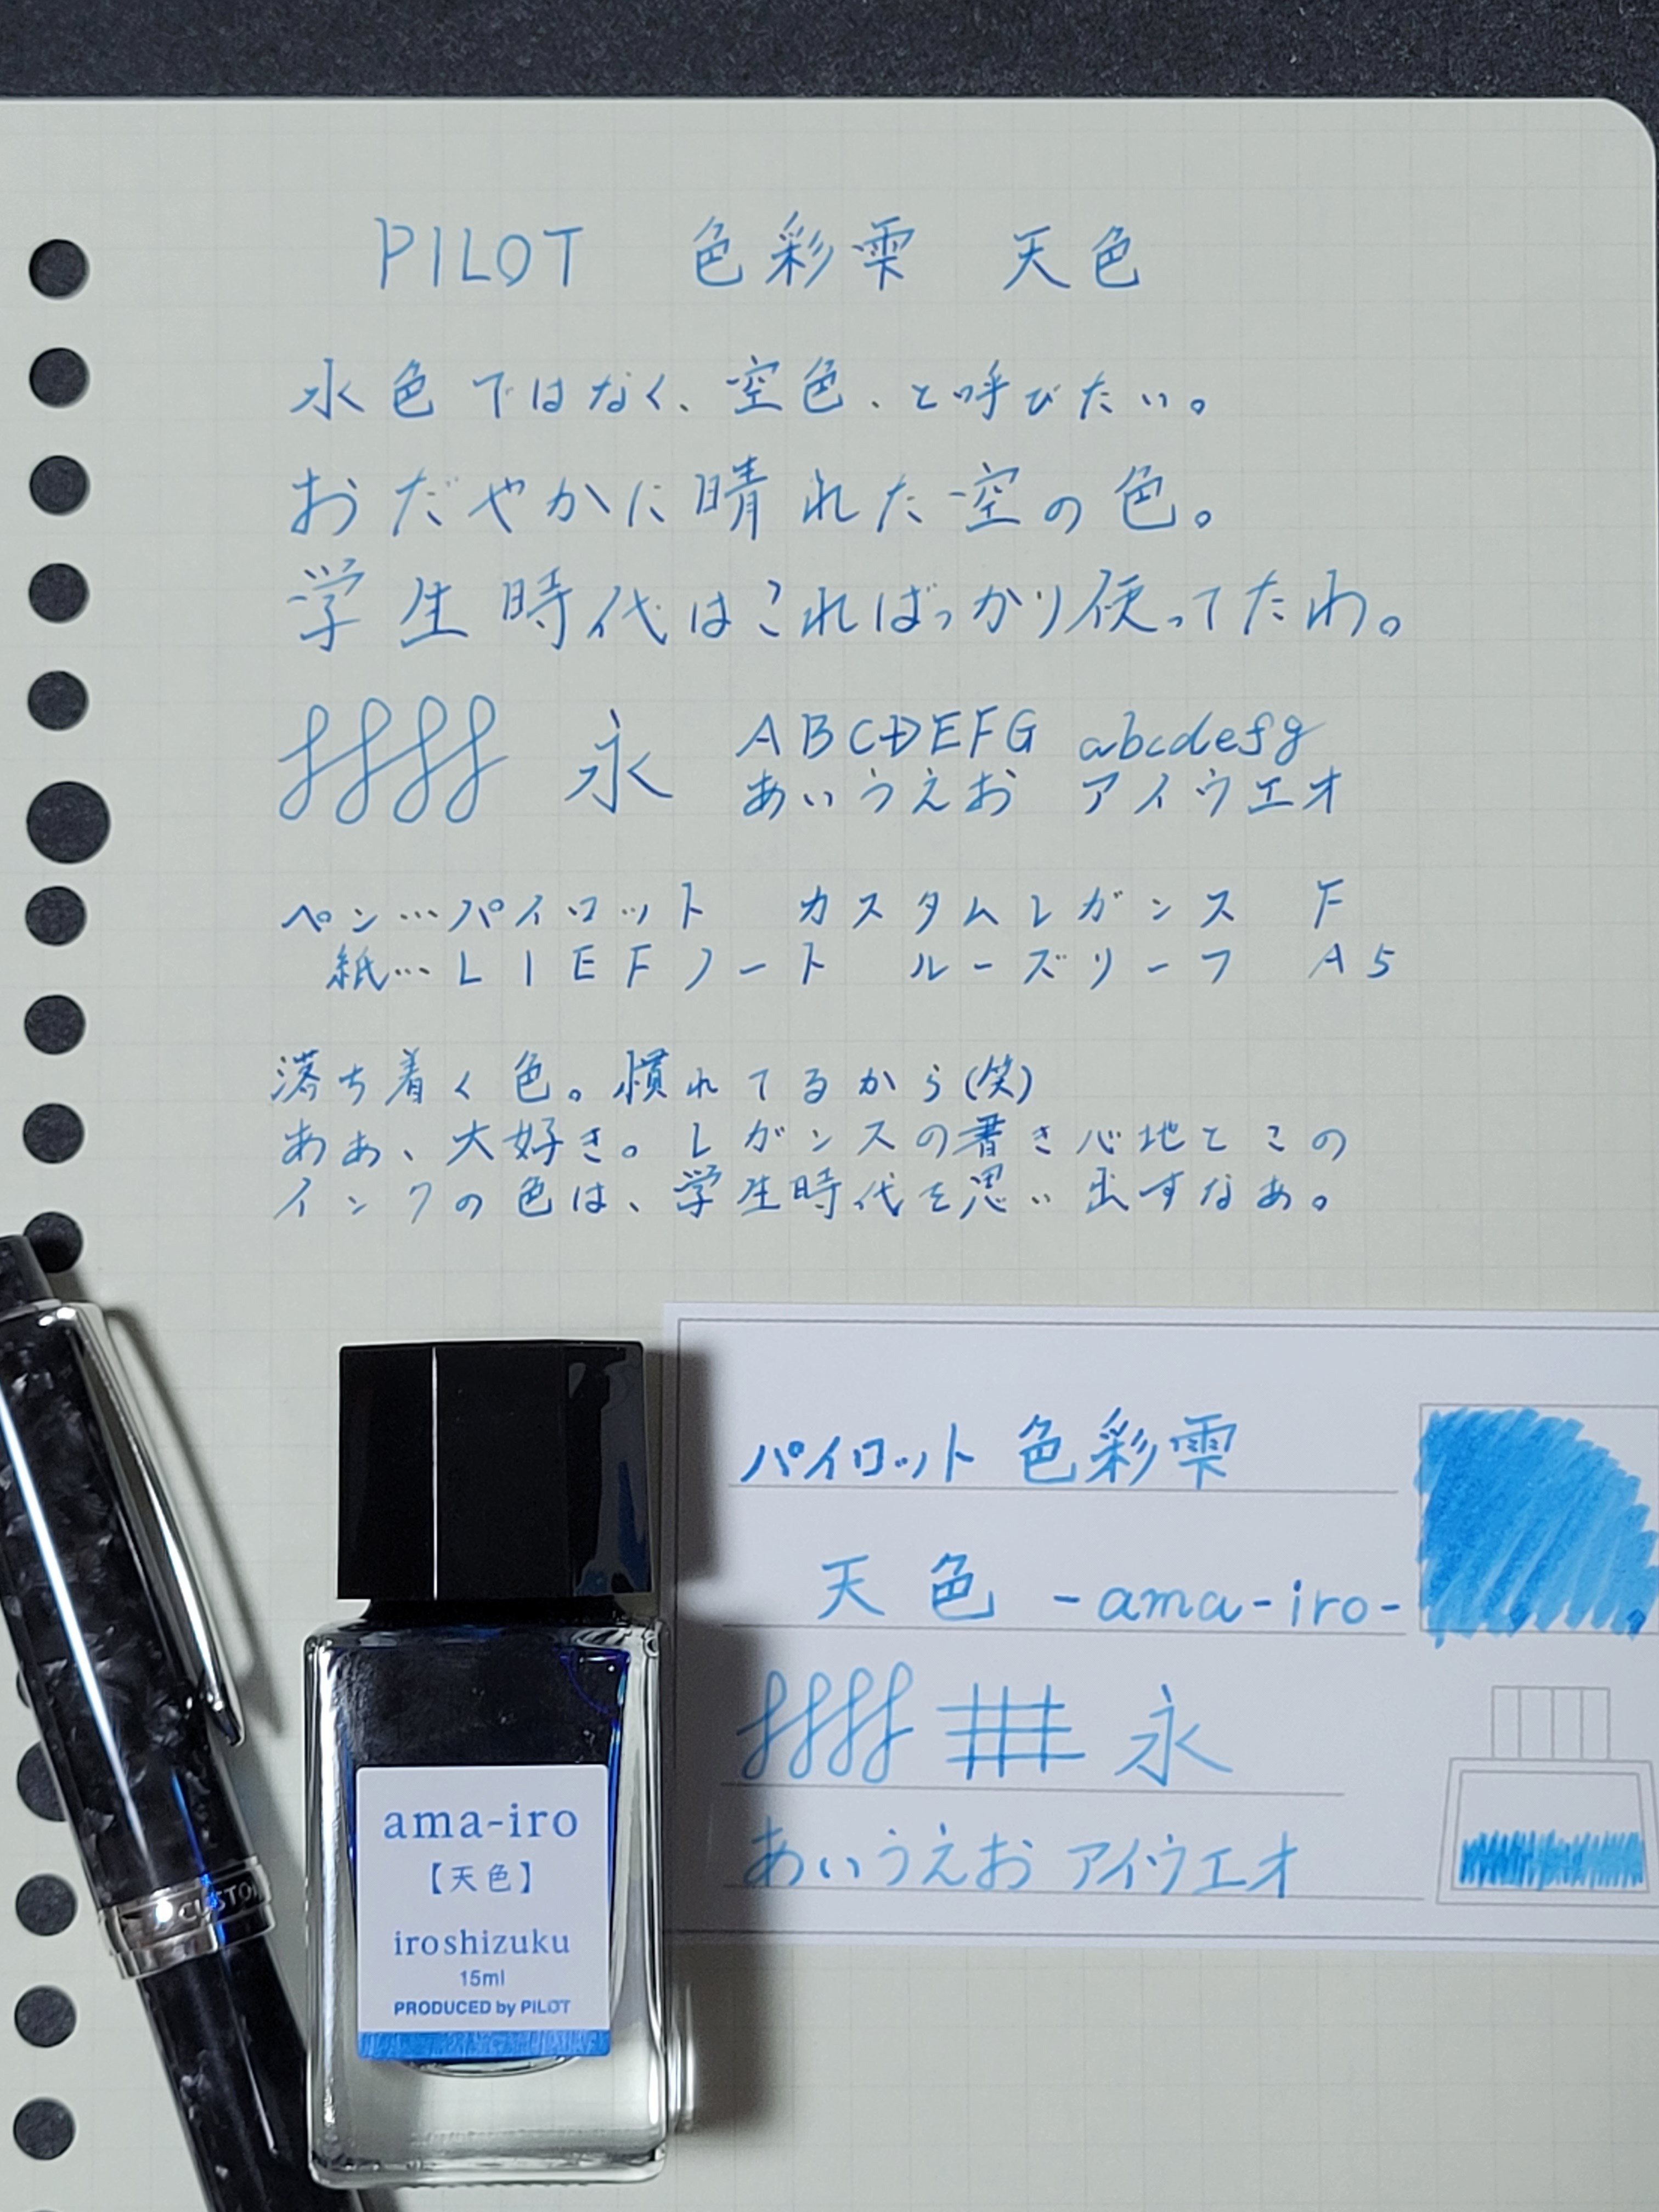 PILOT 色彩雫 天色
水色ではなく、空色、と呼びたい。
おだやかに晴れた空の色。
学生時代はこればっかり使ってたわ。
永 ABCDEFG abcdefg
あいうえお アイウエオ
ペン…パイロット カスタムレガンス F
紙…LIEFノート ルーズリーフ A5
落ち着く色。慣れてるから(笑)
ああ、大好き。レガンスの書き心地とこの
インクの色は、学生時代を思い出すなあ。
パイロット 色彩雫
天色 -ama-iro-
永
あいうえお アイウエオ
ama-iro
【天色】
iroshizuku
15ml
PRODUCED by PILOT